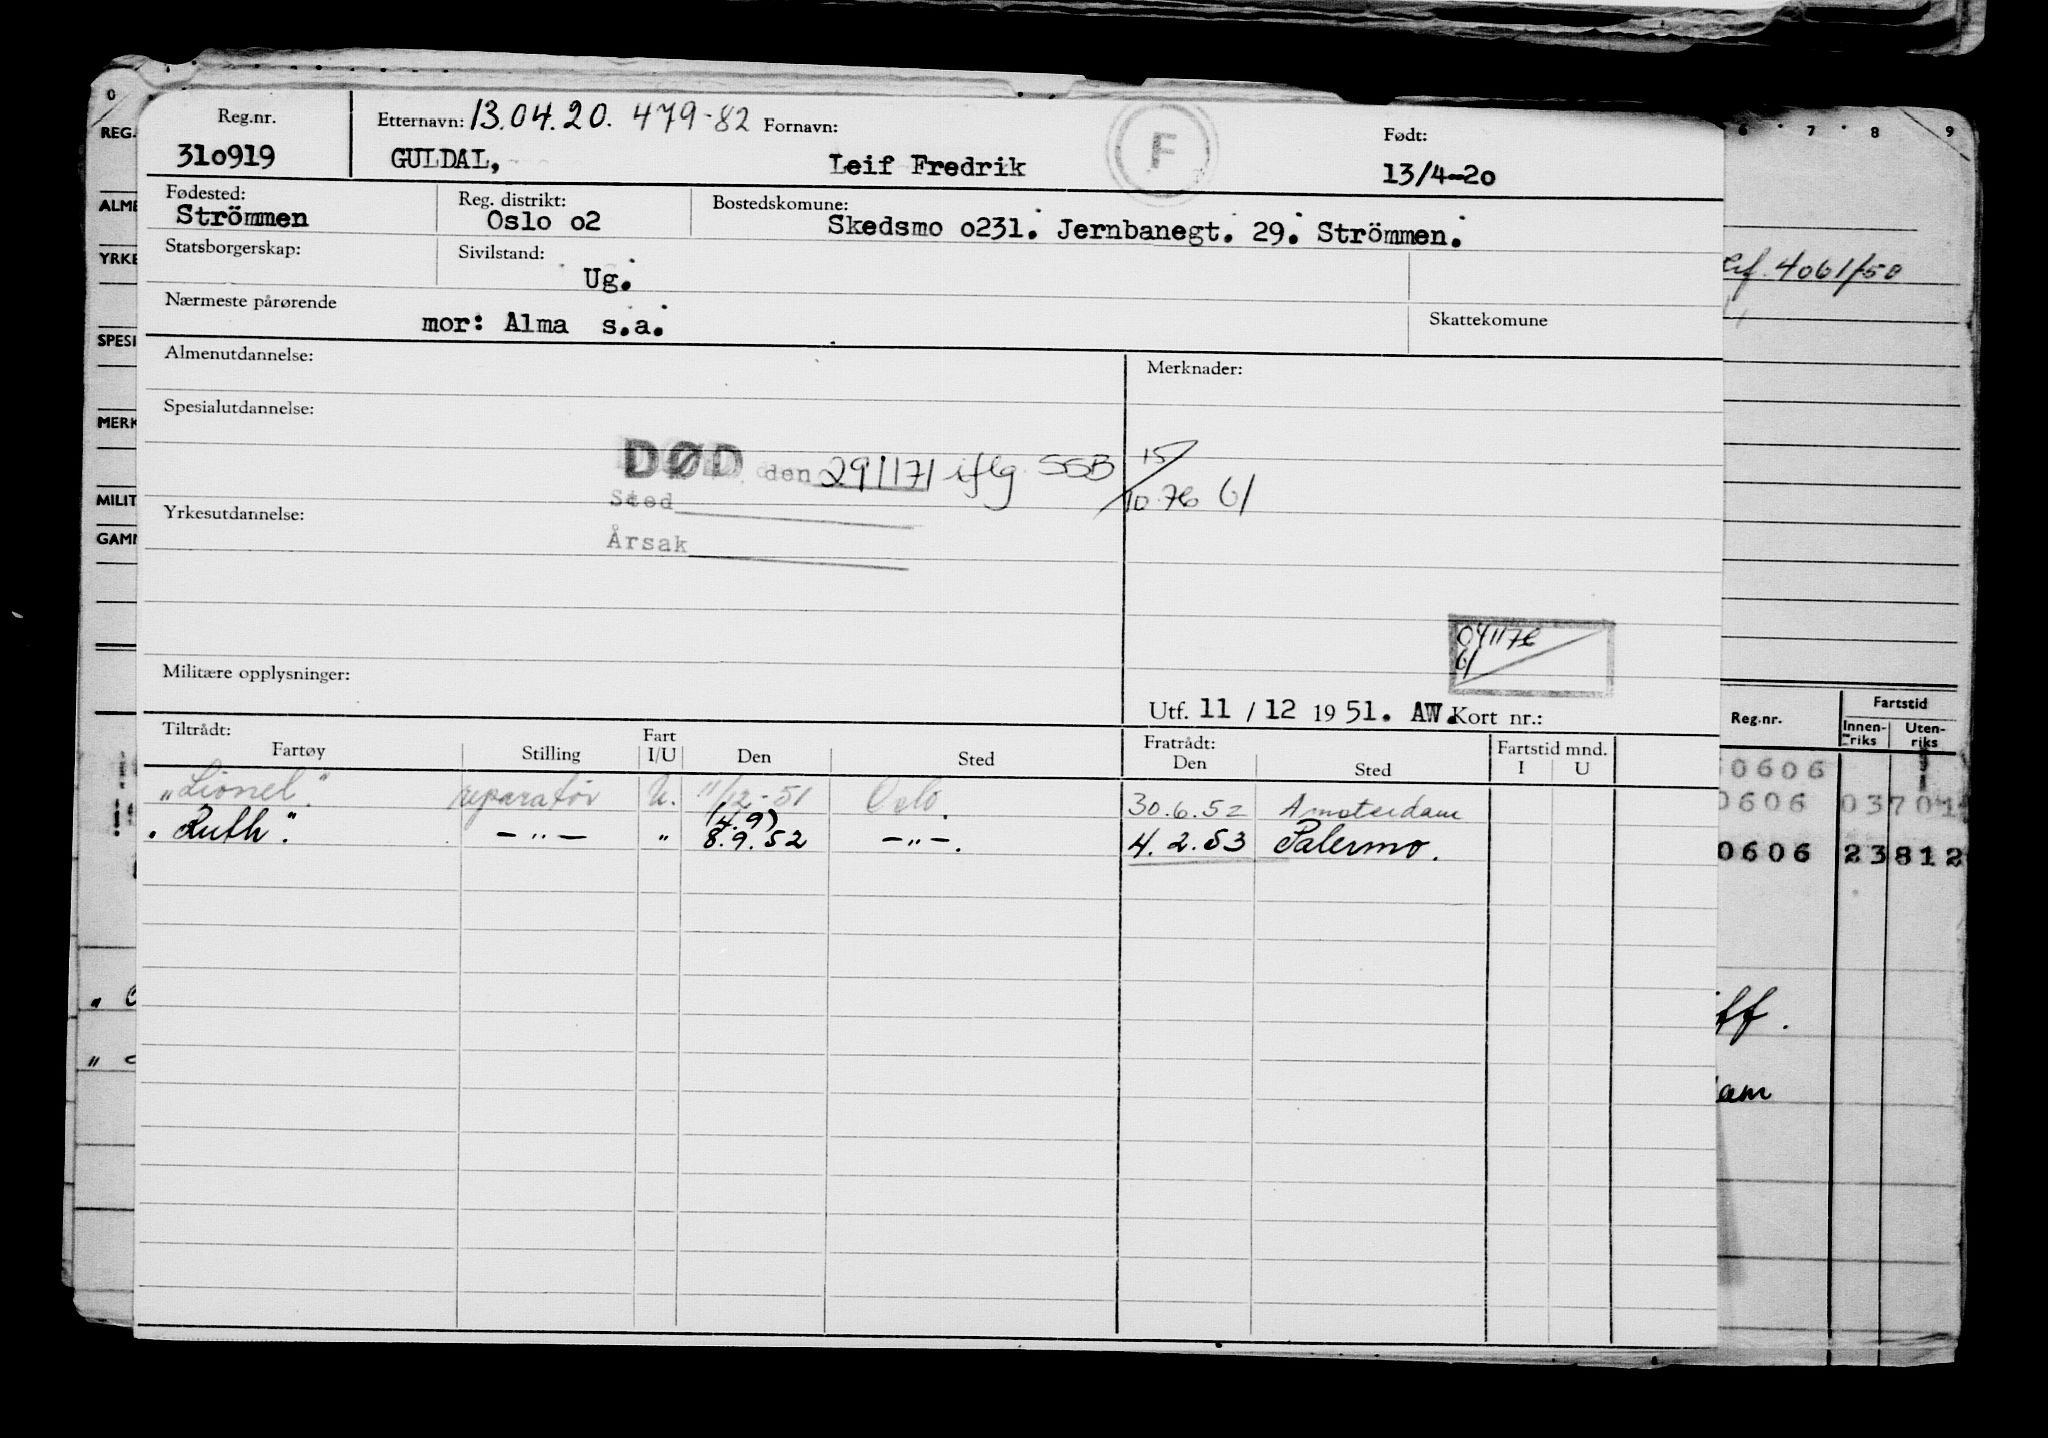 Reg.nr. Etternavn: 13.04.20. 479-82 Fornavn: F Født:
310919 GULDAL, Leif Fredrik 13/4-20
Fødested: Reg. distrikt: Bostedskomune:
Strömmen Oslo 02 Skedsmo 0231. Jernbanegt. 29. Strömmen.
Statsborgerskap: Sivilstand:
Ug.
Nærmeste pårørende Skattekomune
mor: Alma s.a.
Almenutdannelse: Merknader:
Spesialutdannelse:
DØD den 291171 iflg. SSB 15/10.76 61
Sted
Yrkesutdannelse:
Årsak
041176
61
Militære opplysninger:
Utf. 11 / 12 1951. AW. Kort nr.:
Tiltrådt: Fratrådt:
Fartøy Stilling Fart I/U Den Sted Den Sted Fartstid mnd. I U
"Lionel". reparatør U. 11/12-51 Oslo. 30.6.52 Amsterdam
(4.9)
"Ruth". —"— " 8.9.52 —"—. 4.2.53 Palermo.
0
REG.
ALME
YRKE
SPESI
MERK
MILIT
GAMM
6 7 8 9
4061/50
Reg.nr. Fartstid
Innen-riks Uten-riks
0606
0606 03701
0606 23812
ff.
am